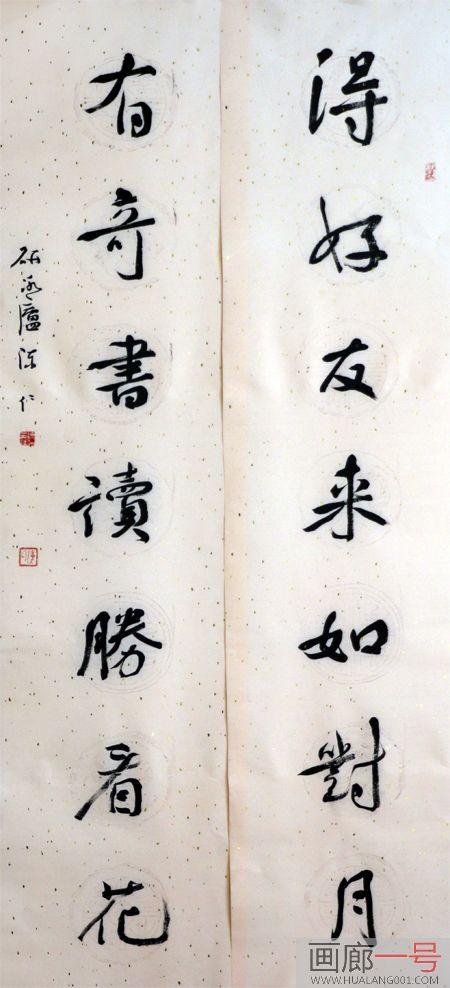 得好友来如對月
有奇書讀勝看花
画廊一号
WWW.HUALANG001.COM